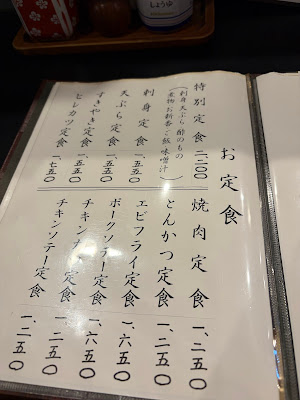 しょうゆ
お定食
特別定食 二、一〇〇
(刺身 天ぷら 酢のもの
煮物 お新香 ご飯 味噌汁)
刺身定食 一、五五〇
天ぷら定食 一、五五〇
すきやき定食 一、五五〇
ヒレカツ定食 一、七五〇
焼肉定食 一、二五〇
とんかつ定食 一、二五〇
エビフライ定食 一、六五〇
ポークソテー定食 一、六五〇
チキンカツ定食 一、二五〇
チキンソテー定食 一、二五〇